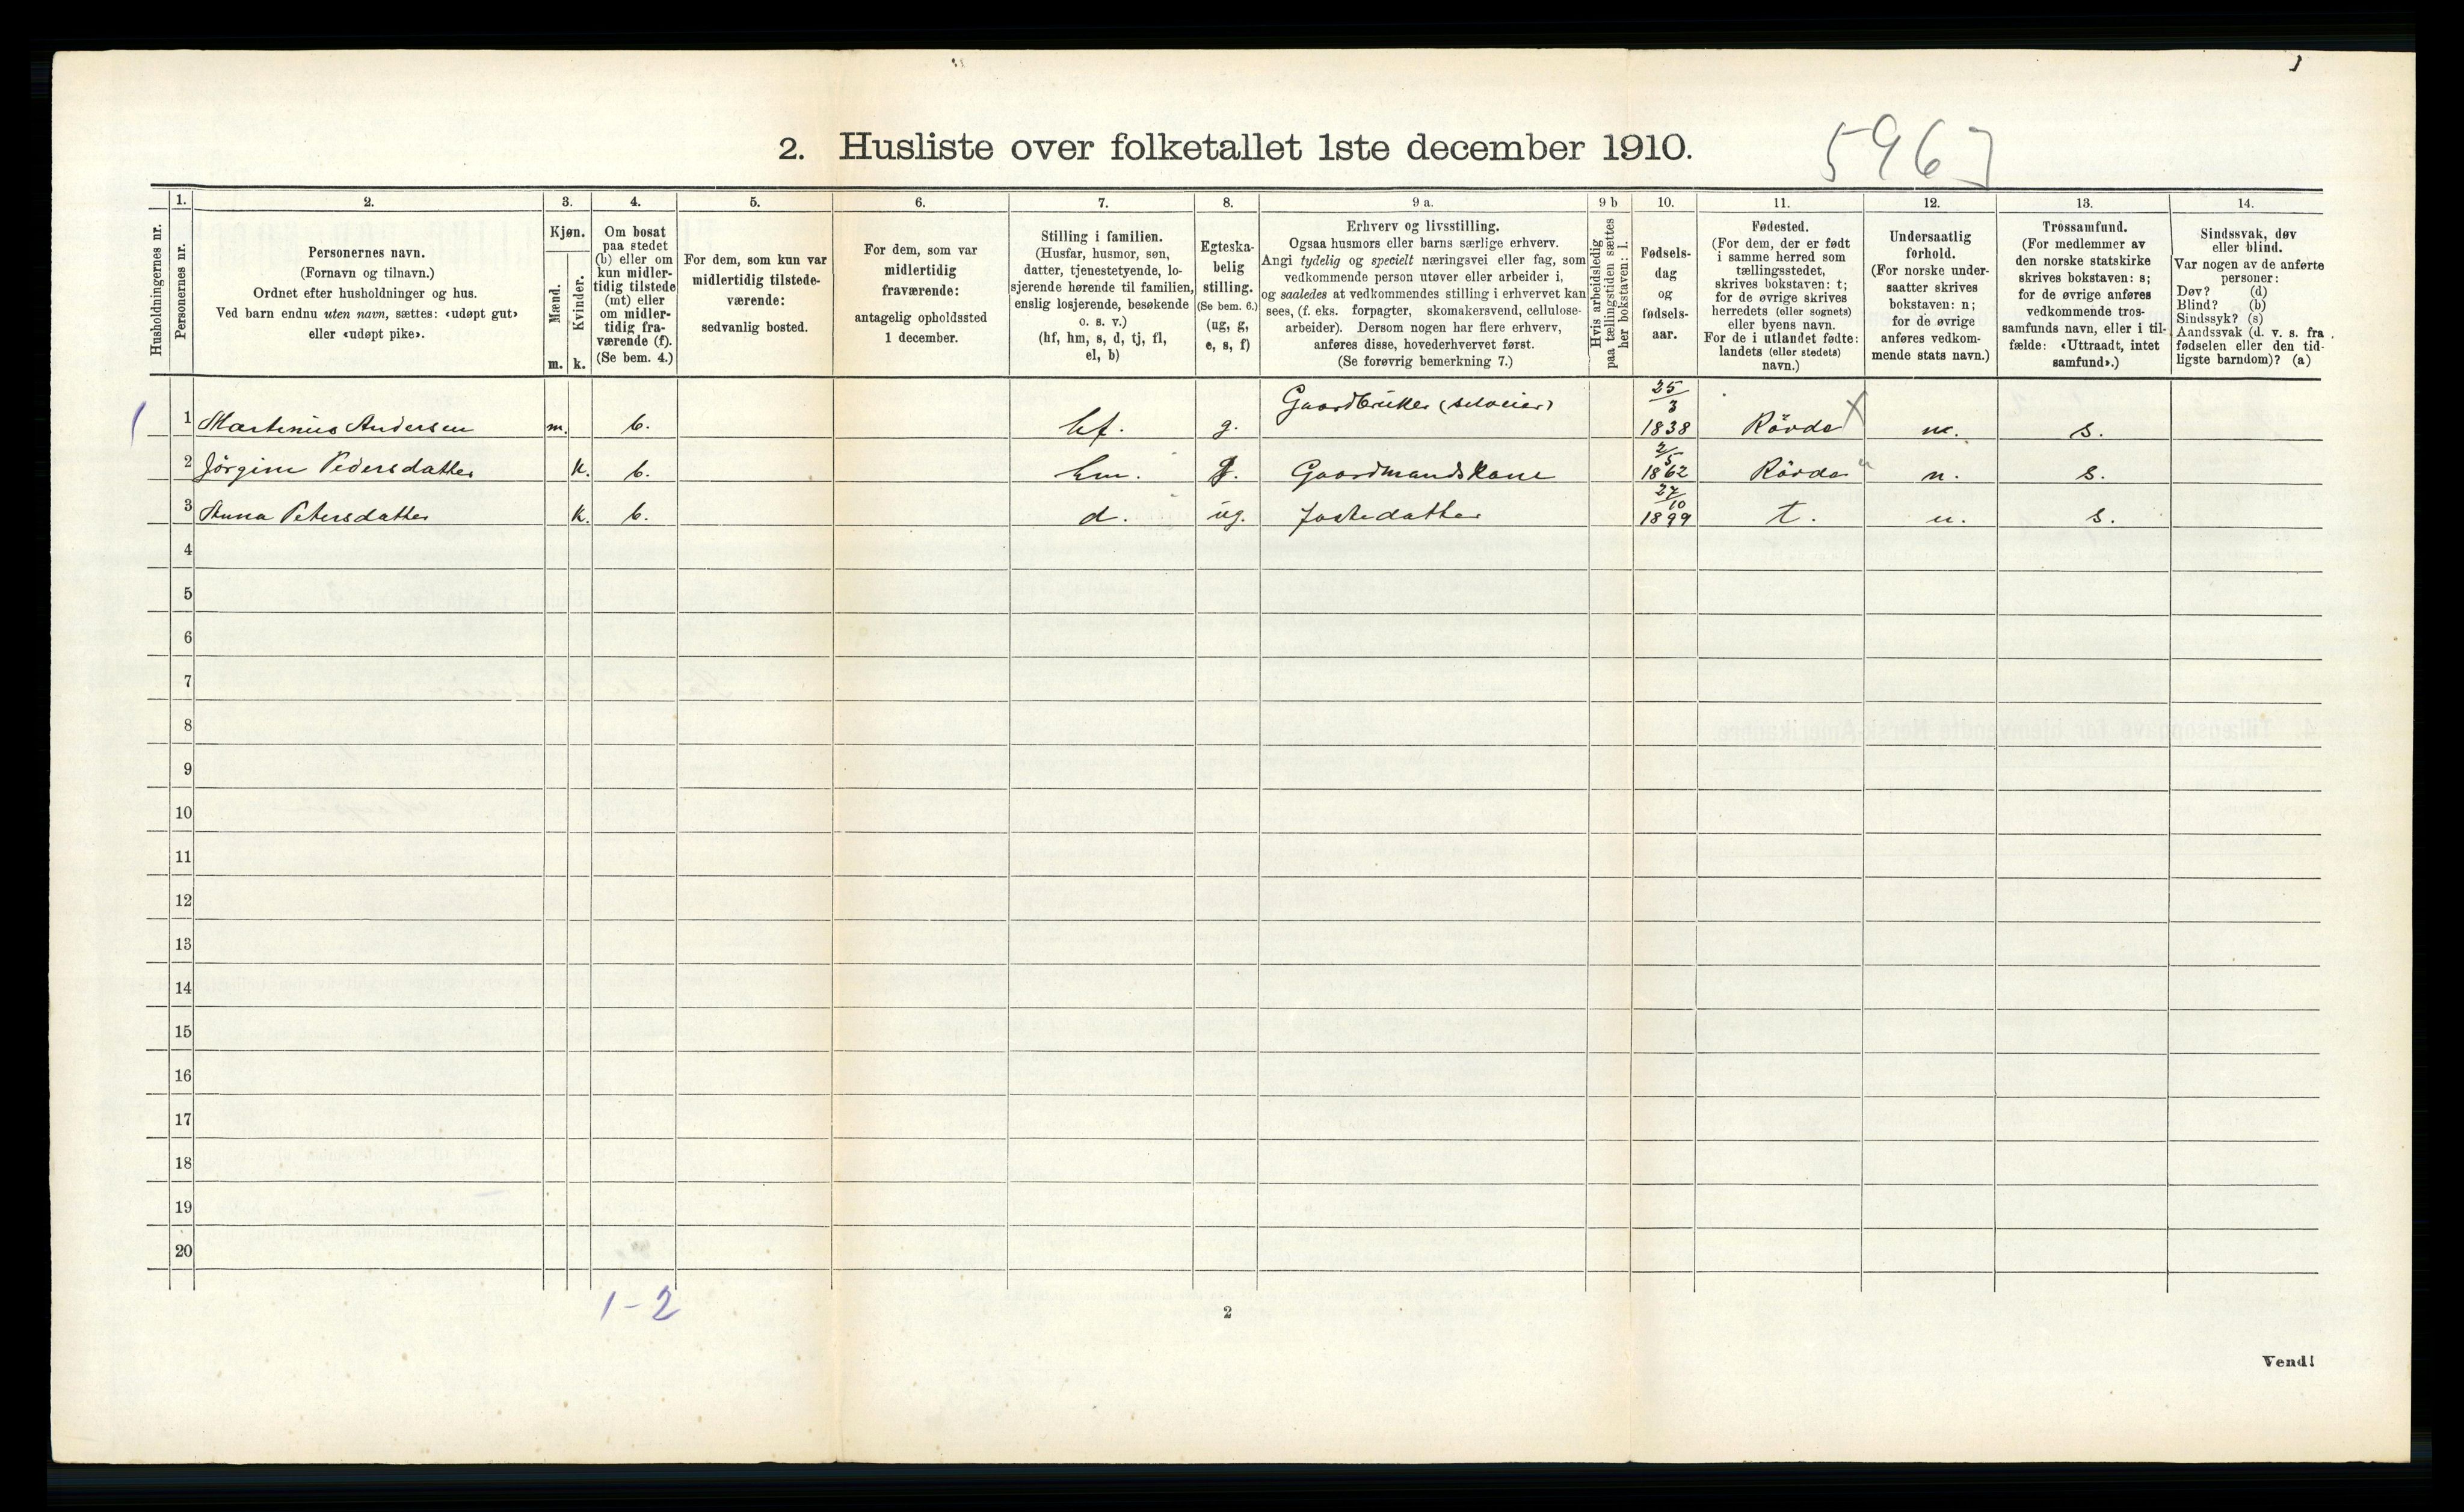 2. Husliste over folketallet 1ste december 1910.
596
Husholdningernes nr.
1.
Personernes nr.
2.
Personernes navn.
(Fornavn og tilnavn.)
Ordnet efter husholdninger og hus.
Ved barn endnu uten navn, sættes: «udøpt gut»
eller «udøpt pike».
3.
Kjøn.
Mænd.
Kvinder.
m. k.
4.
Om bosat
paa stedet
(b) eller om
kun midler-
tidig tilstede
(mt) eller
om midler-
tidig fra-
værende (f).
(Se bem. 4.)
5.
For dem, som kun var
midlertidig tilstede-
værende:
sedvanlig bosted.
6.
For dem, som var
midlertidig
fraværende:
antagelig opholdssted
1 december.
7.
Stilling i familien.
(Husfar, husmor, søn,
datter, tjenestetyende, lo-
sjerende hørende til familien,
enslig losjerende, besøkende
o. s. v.)
(hf, hm, s, d, tj, fl,
el, b)
8.
Egteska-
belig
stilling.
(Se bem. 6.)
(ug, g,
e, s, f)
9 a.
Erhverv og livsstilling.
Ogsaa husmors eller barns særlige erhverv.
Angi tydelig og specielt næringsvei eller fag, som
vedkommende person utøver eller arbeider i,
og saaledes at vedkommendes stilling i erhvervet kan
sees, (f. eks. forpagter, skomakersvend, cellulose-
arbeider). Dersom nogen har flere erhverv,
anføres disse, hovederhvervet først.
(Se forøvrig bemerkning 7.)
9 b
Hvis arbeidsledig
paa tællingstiden sættes
her bokstaven: l.
10.
Fødsels-
dag
og
fødsels-
aar.
11.
Fødested.
(For dem, der er født
i samme herred som
tællingsstedet,
skrives bokstaven: t;
for de øvrige skrives
herredets (eller sognets)
eller byens navn.
For de i utlandet fødte:
landets (eller stedets)
navn.)
12.
Undersaatlig
forhold.
(For norske under-
saatter skrives
bokstaven: n;
for de øvrige
anføres vedkom-
mende stats navn.)
13.
Trossamfund.
(For medlemmer av
den norske statskirke
skrives bokstaven: s;
for de øvrige anføres
vedkommende tros-
samfunds navn, eller i til-
fælde: «Uttraadt, intet
samfund».)
14.
Sindssvak, døv
eller blind.
Var nogen av de anførte
personer:
Døv? (d)
Blind? (b)
Sindssyk? (s)
Aandssvak (d. v. s. fra
fødselen eller den tid-
ligste barndom)? (a)
1 Martinius Andersen m. b. hf. g. Gaardbruker (selveier) 25/3 1838 Røvde n. s.
2 Jörgine Pedersdatter k. b. hm. g. Gaardmandskone 2/5 1862 Røvde n. s.
3 Anna Petersdatter k. b. d. ug. fostedatter 27/10 1899 t. n. s.
4
5
6
7
8
9
10
11
12
13
14
15
16
17
18
19
20
1-2
2
Vend!